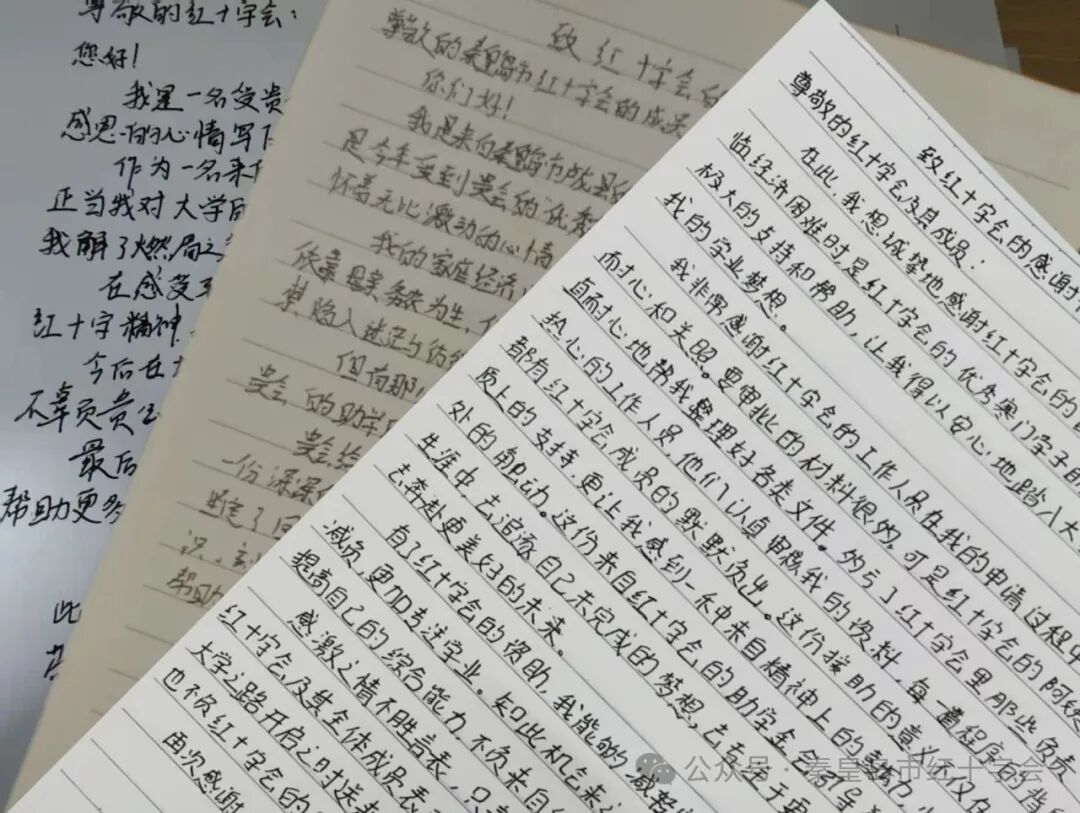 尊敬的红十字会：
您好！
我是一名受贵
感恩的心情写下
作为一名来自
正当我对大学
我解了燃眉之
在感受到
红十字精神
今后在
不辜负贵
最后
帮助更多
此
致红十字会
尊敬的秦皇岛市红十字会的成员
你们好！
我是来自秦皇岛市
是今年受到贵会的
怀着无比激动的心情
我的家庭经济
依靠母亲务农为生，
梦，陷入迷茫与彷徨
但有那
贵会的助学
贵会给
一份深深
帮助
致红十字会的感谢
尊敬的红十字会及其成员：
在此，我想诚挚地感谢红十字会的
临经济困难时是红十字会的优秀寒门学子
极大的支持和帮助，让我得以安心地踏入大
我的学业梦想。
我非常感谢红十字会的工作人员在我的申请过程中
而耐心和关照。要审批的材料很多，可是红十字会的阿姨
直耐心地帮我整理好各类文件。多亏了红十字会里那些负责
热心的工作人员，他们认真审核我的资料，每一道程序的
都有红十字会成员的默默付出。这份援助的意义不仅仅
质上的支持，更让我感到一种来自精神上的鼓励，
外的触动。这份来自红十字会的助学金会引导
生涯中，去追逐自己未完成的梦想，去
去奔赴更美好的未来。
有了红十字会的资助，我能够
减负，更加专注学业。如此机会来之
提高自己的综合能力，不负来自
感激之情不胜言表，只
红十字会及其全体成员表
大学之路开启之时送来
也不负红十字会的
再次感谢
公众号·秦皇岛市红十字会